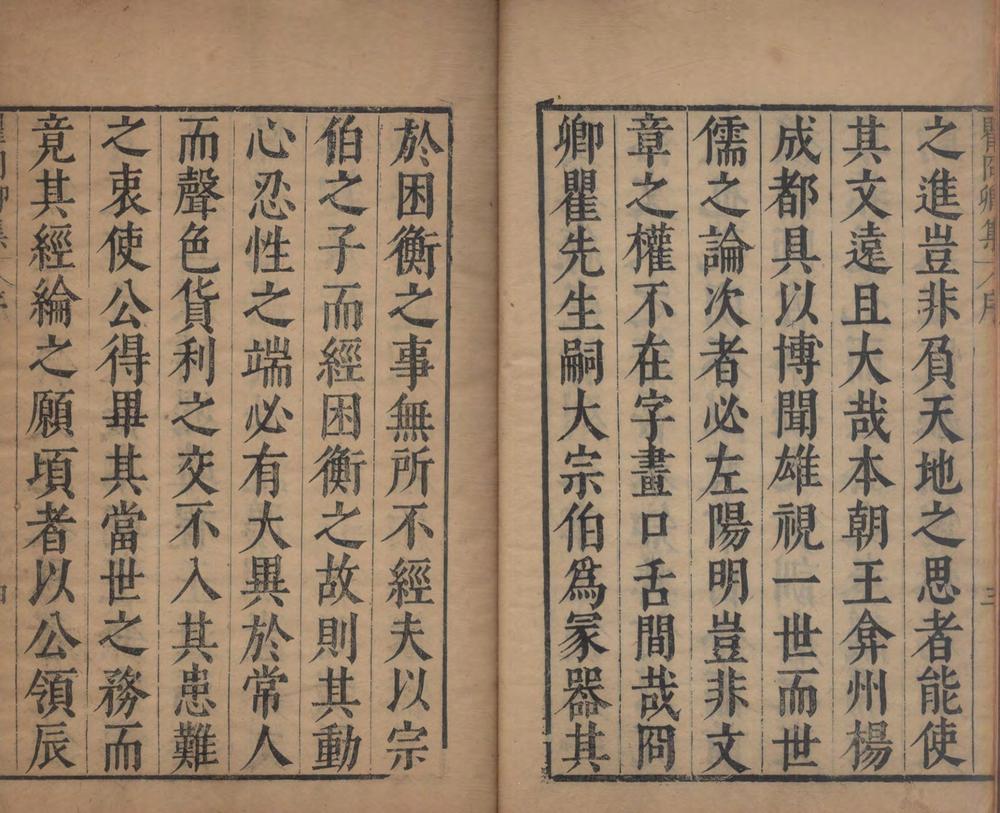 瞿冏卿集 序 三
之進豈非負天地之思者能使
其文遠且大哉本朝王弇州楊
成都具以博聞雄視一世而世
儒之論次者必左陽明豈非文
章之權不在字畫口舌間哉冏
卿瞿先生嗣大宗伯為冡器其
於困衡之事無所不經夫以宗
伯之子而經困衡之故則其動
心忍性之端必有大異於常人
而聲色貨利之交不入其患難
之衷使公得畢其當世之務而
竟其經綸之願頃者以公領辰